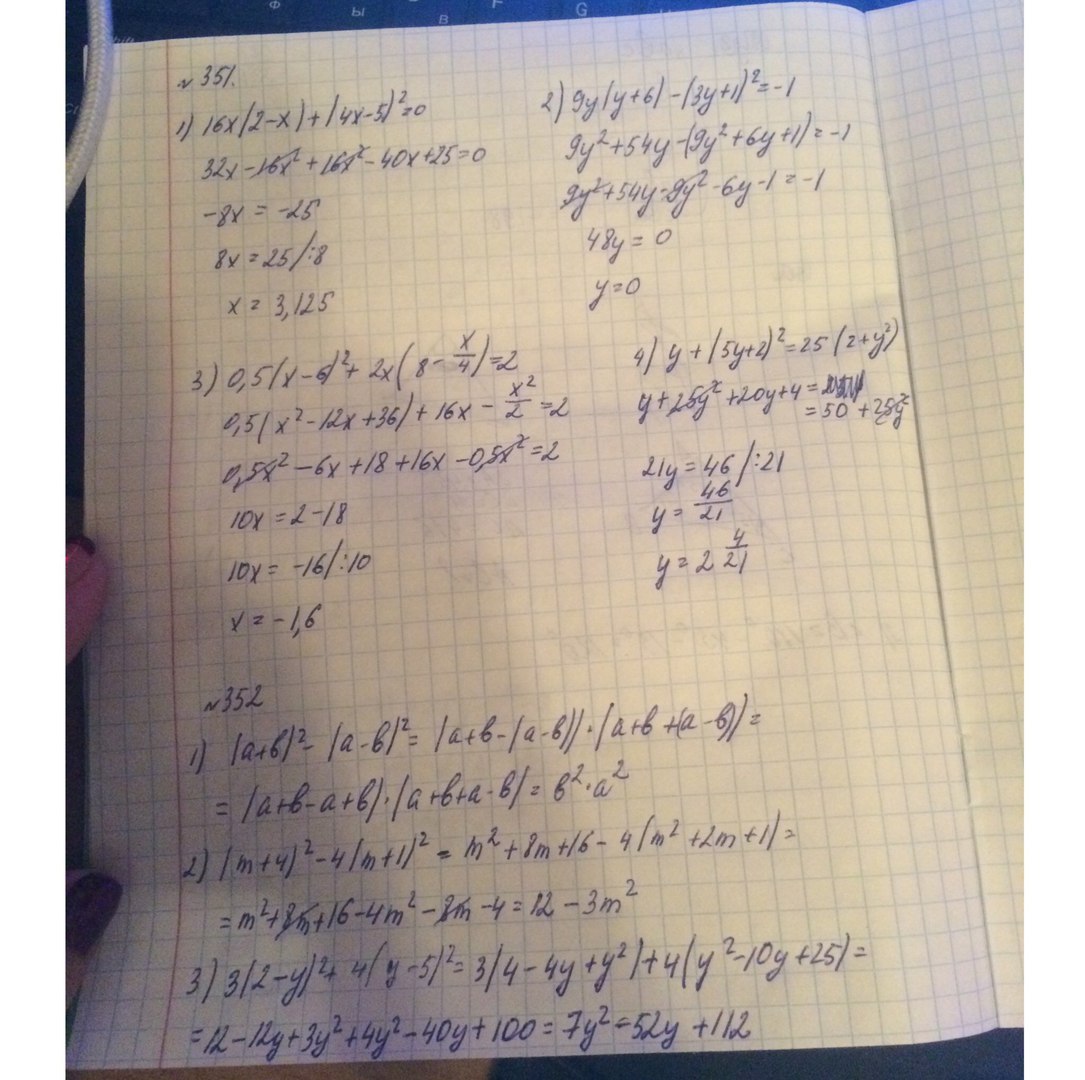 №351.
1) 16x(2-x)+(4x-5)²=0
32x-16x²+16x²-40x+25=0
-8x = -25
8x = 25/:8
x = 3,125
2) 9y(y+6)-(3y+1)²=-1
9y²+54y-(9y²+6y+1)=-1
9y²+54y-9y²-6y-1=-1
48y = 0
y=0
3) 0,5(x-6)²+2x(8-x/4)=2
0,5(x²-12x+36)+16x-x²/2=2
0,5x²-6x+18+16x-0,5x²=2
10x = 2-18
10x = -16/:10
x = -1,6
4) y+(5y+2)²=25(2+y²)
y+25y²+20y+4=
=50+25y²
21y=46/:21
y=46/21
y=2 4/21
№352
1) (a+в)²-(a-в)²=(a+в-(a-в))·(a+в+(a-в))=
=(a+в-a+в)·(a+в+a-в)=в²·a²
2) (m+4)²-4(m+1)²=m²+8m+16-4(m²+2m+1)=
=m²+8m+16-4m²-8m-4=12-3m²
3) 3(2-y)²+4(y-5)²=3(4-4y+y²)+4(y²-10y+25)=
=12-12y+3y²+4y²-40y+100=7y²-52y+112